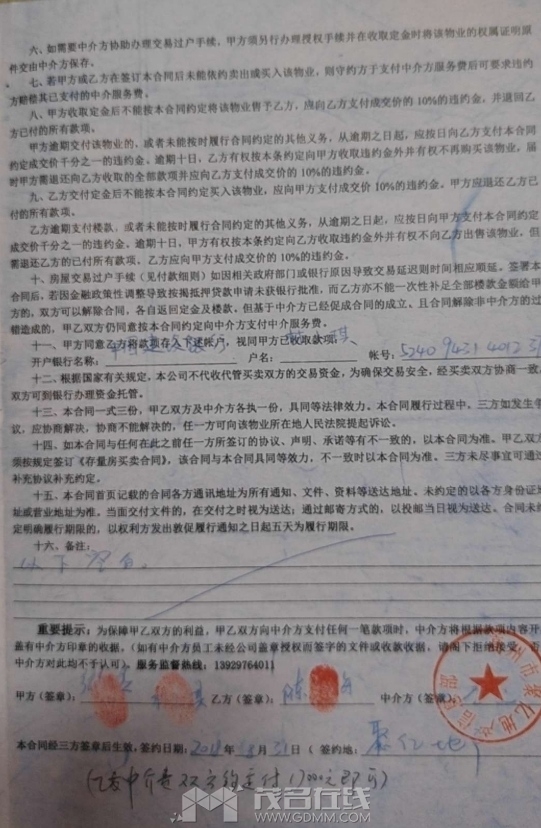 六、如需要中介方协助办理交易过户手续，甲方须另行办理授权手续并在收取定金时将该物业的权属证明原
件交由中介方保存。
七、若甲方或乙方在签订本合同后未能依约卖出或买入该物业，则守约方于支付中介方服务费后可要求违约
方赔偿其已支付的中介服务费。
八、甲方收取定金后不能按本合同约定将该物业售予乙方，应向乙方支付成交价的10%的违约金，并退回乙
方已付的所有款项。
甲方逾期交付该物业的、或者未能按时履行合同约定的其他义务，从逾期之日起，应按日向乙方支付本合同
约定成交价千分之一的违约金。逾期十日，乙方有权按本条约定向甲方收取违约金外并有权不再购买该物业，届
时甲方需退还向乙方收取的全部款项并应向乙方支付成交价的10%的违约金。
九、乙方交付定金后不能按本合同约定买入该物业，应向甲方支付成交价10%的违约金。甲方应退还乙方已
付的所有款项。
乙方逾期支付楼款、或者未能按时履行合同约定的其他义务，从逾期之日起，应按日向甲方支付本合同约定
成交价千分之一的违约金。逾期十日，甲方有权按本条约定向乙方收取违约金外并有权不向乙方出售该物业，但
需退还乙方的已付所有款项。乙方应向甲方支付成交价的10%的违约金。
十、房屋交易过户手续（见付款细则）如因相关政府部门或银行原因导致交易延迟则时间相应顺延。签署本
合同后，若因金融政策性调整导致按揭抵押贷款申请未获银行批准，而乙方亦不能一次性补足全部楼款金额给甲
方的，双方可以解除合同，各自返回定金及楼款，但基于中介方已经促成合同的成立、且合同解除非中介方的过
错造成的，甲乙双方仍同意按本合同约定向中介方支付中介服务费。
十一、甲方同意乙方将款项存入下述帐户，视同甲方已收取款项：
开户银行名称： 户名： 琪 帐号：5240 9431 4012 3
十二、根据国家有关规定，本公司不代收代管买卖方的交易资金，为确保交易安全，经买卖双方协商一致，
双方可到银行办理资金托管。
十三、本合同一式三份，甲乙双方及中介方各执一份，具同等法律效力。本合同履行过程中，三方如发生争
议，应协商解决，协商不能解决的，任一方可向该物业所在地人民法院提起诉讼。
十四、如本合同与任何在此之前任一方所签订的协议、声明、承诺等有不一致的，以本合同为准。甲乙双方
须按规定签订《存量房买卖合同》，该合同与本合同具同等效力，不一致时以本合同为准。三方未尽事宜可通过
补充协议补充约定。
十五、本合同首页记载的合同各方通讯地址为所有通知、文件、资料等送达地址。未约定的以各方身份证地
址或营业地址为准。当面交付文件的，在交付之时视为送达；通过邮寄方式的，以投邮当日视为送达。合同未约
定明确履行期限的，以权利方发出敦促履行通知之日起五天为履行期限。
十六、备注：
以下空白。
重要提示：为保障甲乙双方的利益，甲乙双方向中介方支付任何一笔款项时，中介方将根据款项内容开
盖有中介方印章的收据。（如有中介方员工未经公司盖章授权而签字的文件或收款收据，请阁下拒绝接受，
中介方对此均不予认可）。服务监督热线：13929764011
甲方（签章）： 乙方（签章）：陈 中介方（签章）：
本合同经三方签章后生效，签约日期：201 年8月31日（签约地：聚亿地
（乙方中介费双方约定付17000元即可）
茂名在线
WWW.GDMM.COM